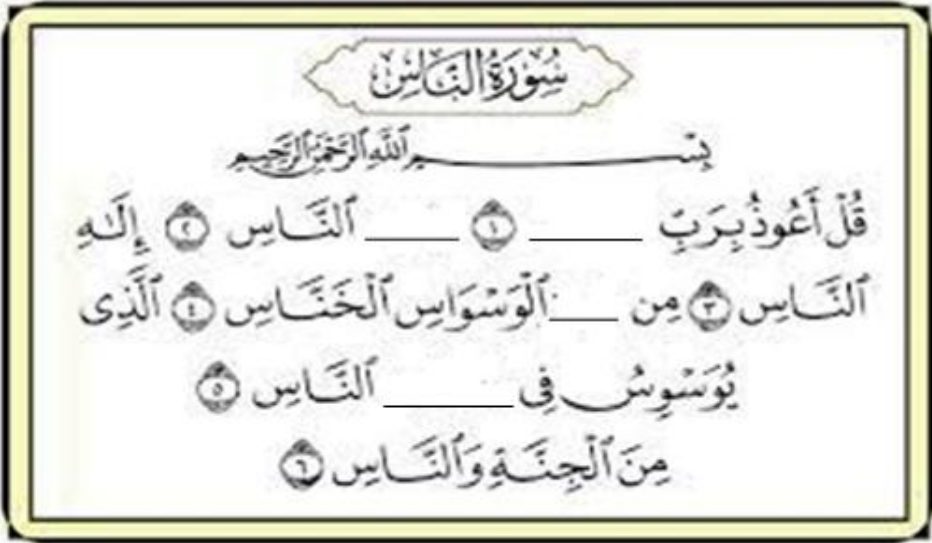 سُورَةُ النَّاسِ
بِسْمِ ٱللَّهِ ٱلرَّحْمَٰنِ ٱلرَّحِيمِ
قُلْ أَعُوذُ بِرَبِّ ______ ١ ______ ٱلنَّاسِ ٢ إِلَٰهِ
ٱلنَّاسِ ٣ مِن ____ ٱلْوَسْوَاسِ ٱلْخَنَّاسِ ٤ ٱلَّذِى
يُوَسْوِسُ فِى ________ ٱلنَّاسِ ٥
مِنَ ٱلْجِنَّةِ وَٱلنَّاسِ ٦